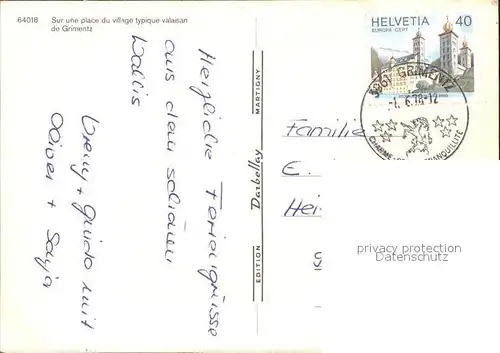 64018 Sur une place du village typique valaisan
de Grimentz
Herzliche Feriengrüsse
aus dem schönen
Wallis
Vreny + Guido mit
Oliver + Sonja
EDITION Darbellay MARTIGNY
HELVETIA 40
EUROPA CEPT
3961 GRIMENTZ
-1.-6.78-12
Familie
E.
Hei
privacy protection
Datenschutz